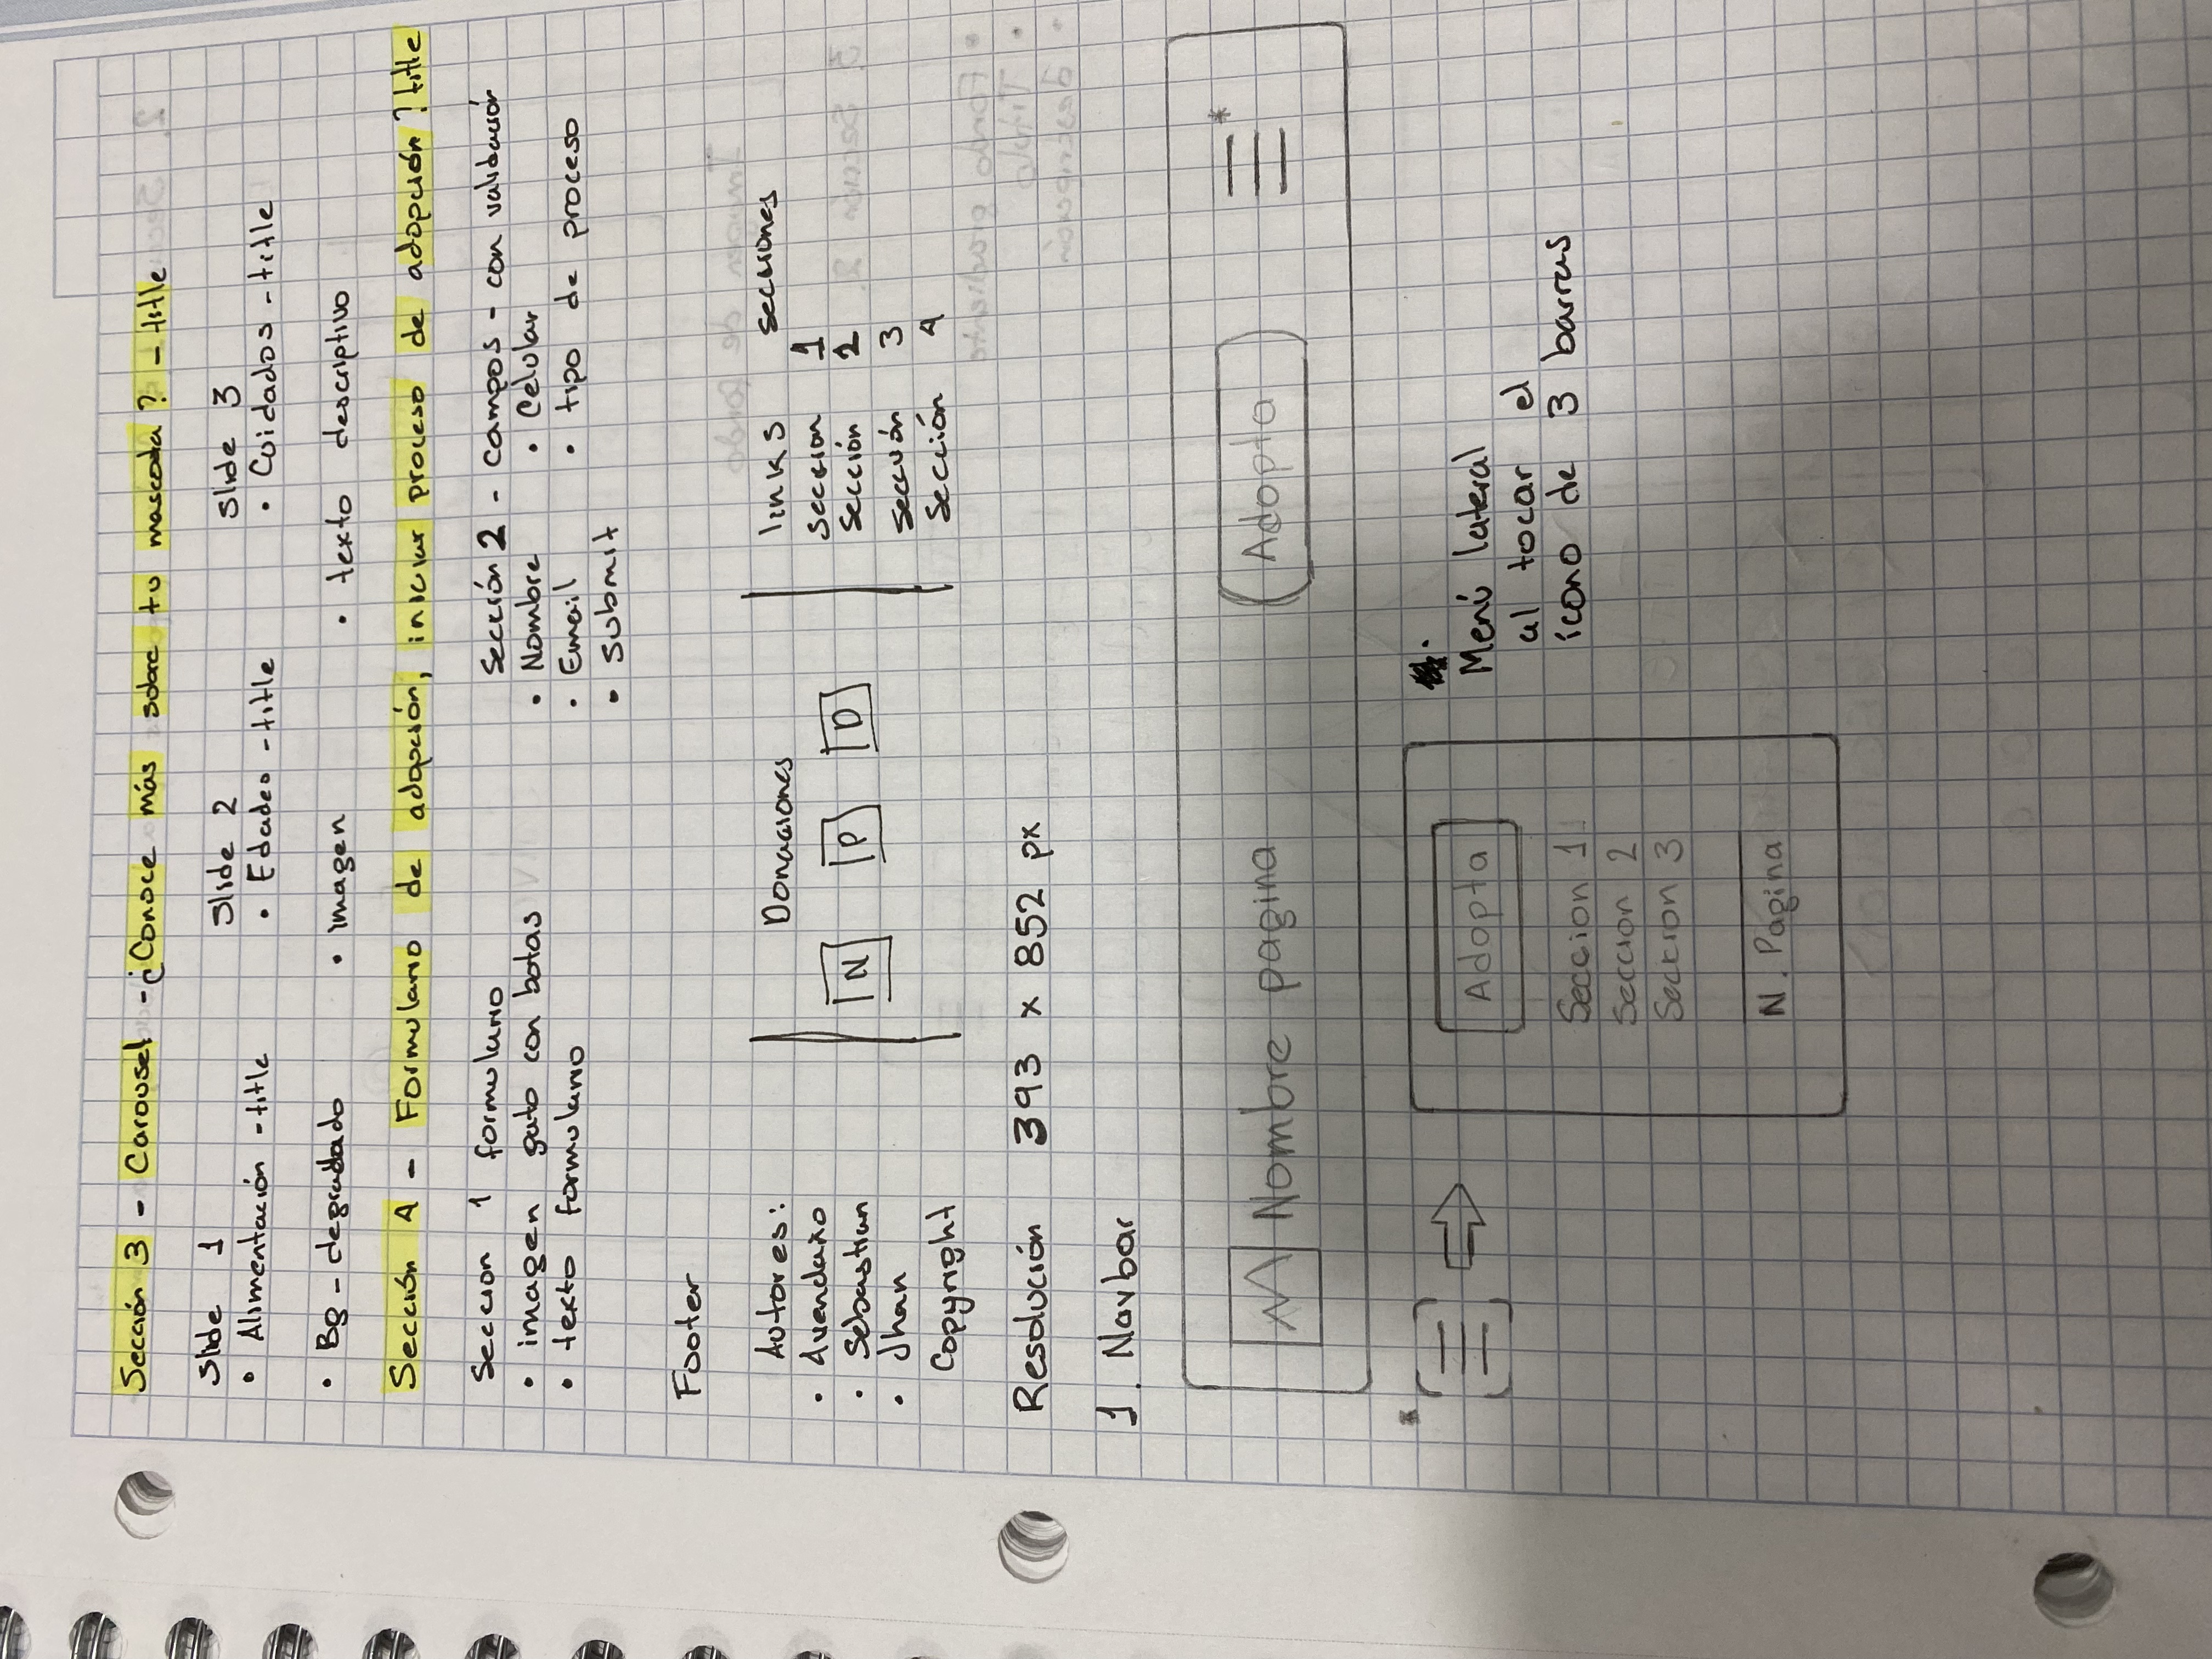 Sección 3 - Carousel - ¿Conoce más sobre tu mascota? - title
Slide 1
• Alimentación - title
Slide 2
• Edades - title
Slide 3
• Cuidados - title
• Bg - degradado • imagen • texto descriptivo
Sección 4 - Formulario de adopción, iniciar proceso de adopción? title
Sección 1 formulario
• imagen gato con botas
• texto formulario
Sección 2 - campos - con validación
• Nombre • Celular
• Email • tipo de proceso
• Submit
Footer
Autores:
• Avendaño
• Sebastian
• Jhan
Copyright
Donaciones
N P D
links secciones
Sección 1
Sección 2
Sección 3
Sección 4
Resolución 393 x 852 px
1. Navbar
Nombre pagina Adopta *
*
Adopta
Seccion 1
Seccion 2
Seccion 3
N. Pagina
Menú lateral
al tocar el
ícono de 3 barras